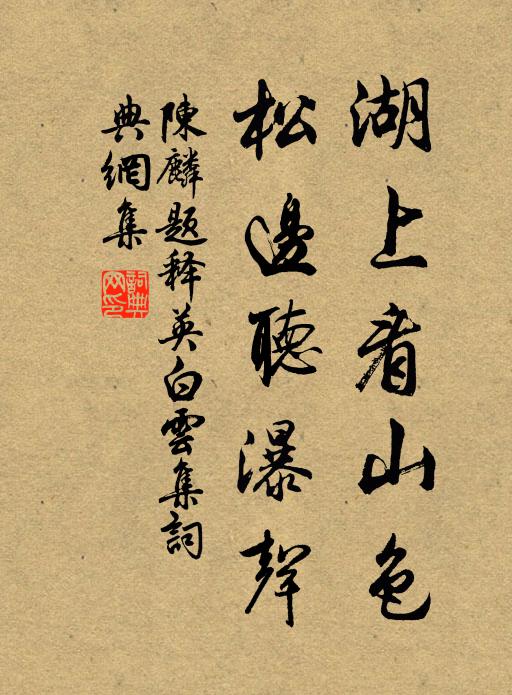 湖上看山色
松邊聽瀑聲
陳麟題释英白雲集詞
典網集
詞典网印